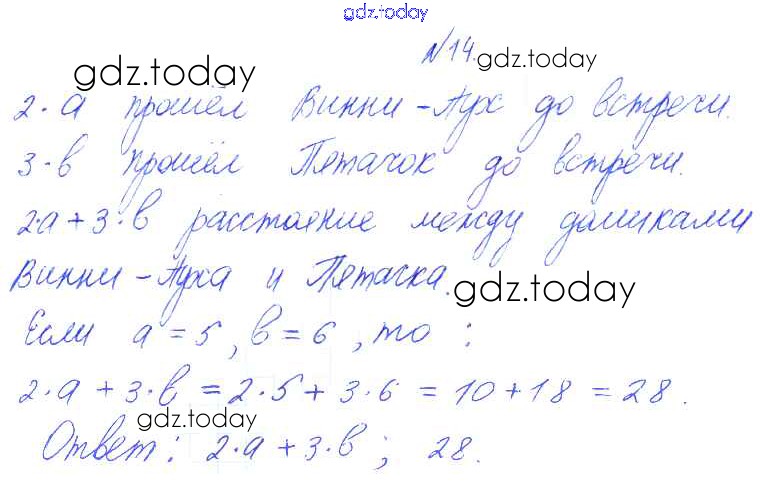 gdz.today
№14.
gdz.today
gdz.today
2·a прошёл Винни-Пух до встречи.
3·в прошёл Пятачок до встречи.
2·a+3·в расстояние между домиками
Винни-Пуха и Пятачка.
gdz.today
Если a=5, в=6, то :
2·a+3·в=2·5+3·6=10+18=28.
gdz.today
Ответ: 2·a+3·в; 28.